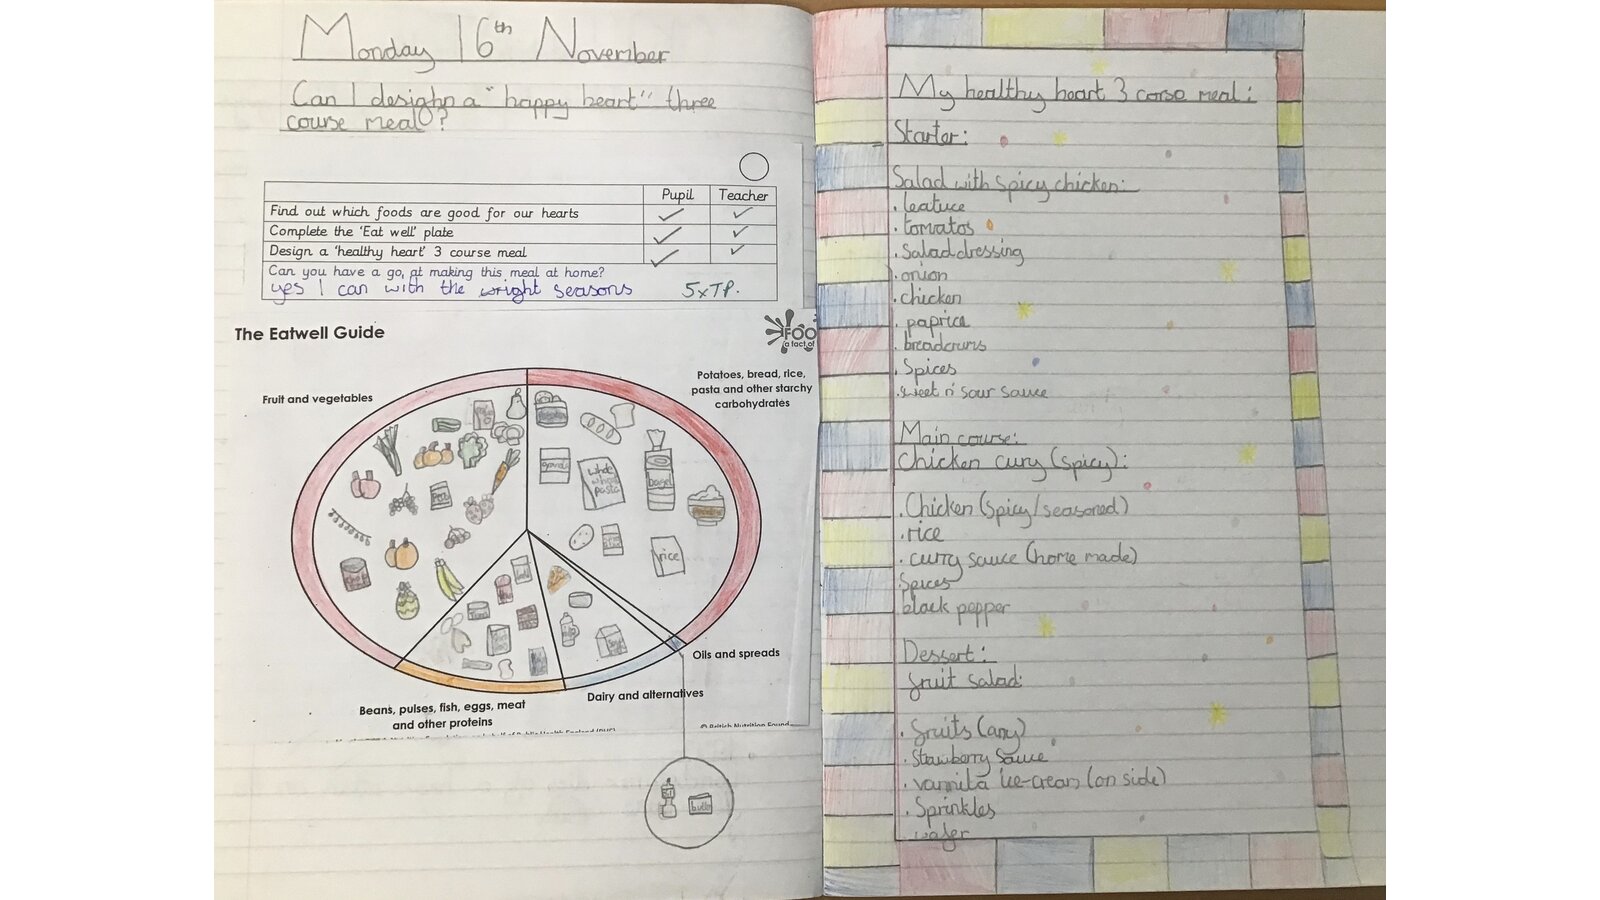 Monday 16th November
Can I desighn a "happy heart" three
course meal?
Pupil Teacher
Find out which foods are good for our hearts
Complete the 'Eat well' plate
Design a 'healthy heart' 3 course meal
Can you have a go, at making this meal at home?
yes I can with the wright seasons 5xTP.
The Eatwell Guide
FOO
a fact of
Fruit and vegetables
Potatoes, bread, rice,
pasta and other starchy
carbohydrates
whole
wheat
pasta
bagel
rice
Oils and spreads
Dairy and alternatives
Beans, pulses, fish, eggs, meat
and other proteins
© British Nutrition Found
My healthy heart 3 corse meal:
Starter:
Salad with spicy chicken:
. leatuce
. tomatos
. Salad dressing
. onion
. chicken
. paprica
. breadcrums
. Spices
. sweet n' sour sauce
Main course:
Chicken cury (spicy):
. Chicken (spicy/seasoned)
. rice
. curry sauce (home made)
Spices
black pepper
Dessert:
fruit salad:
. fruits (any)
. Strawberry Sauce
. vannila ice-cream (on side)
. Sprinkles
. wafer